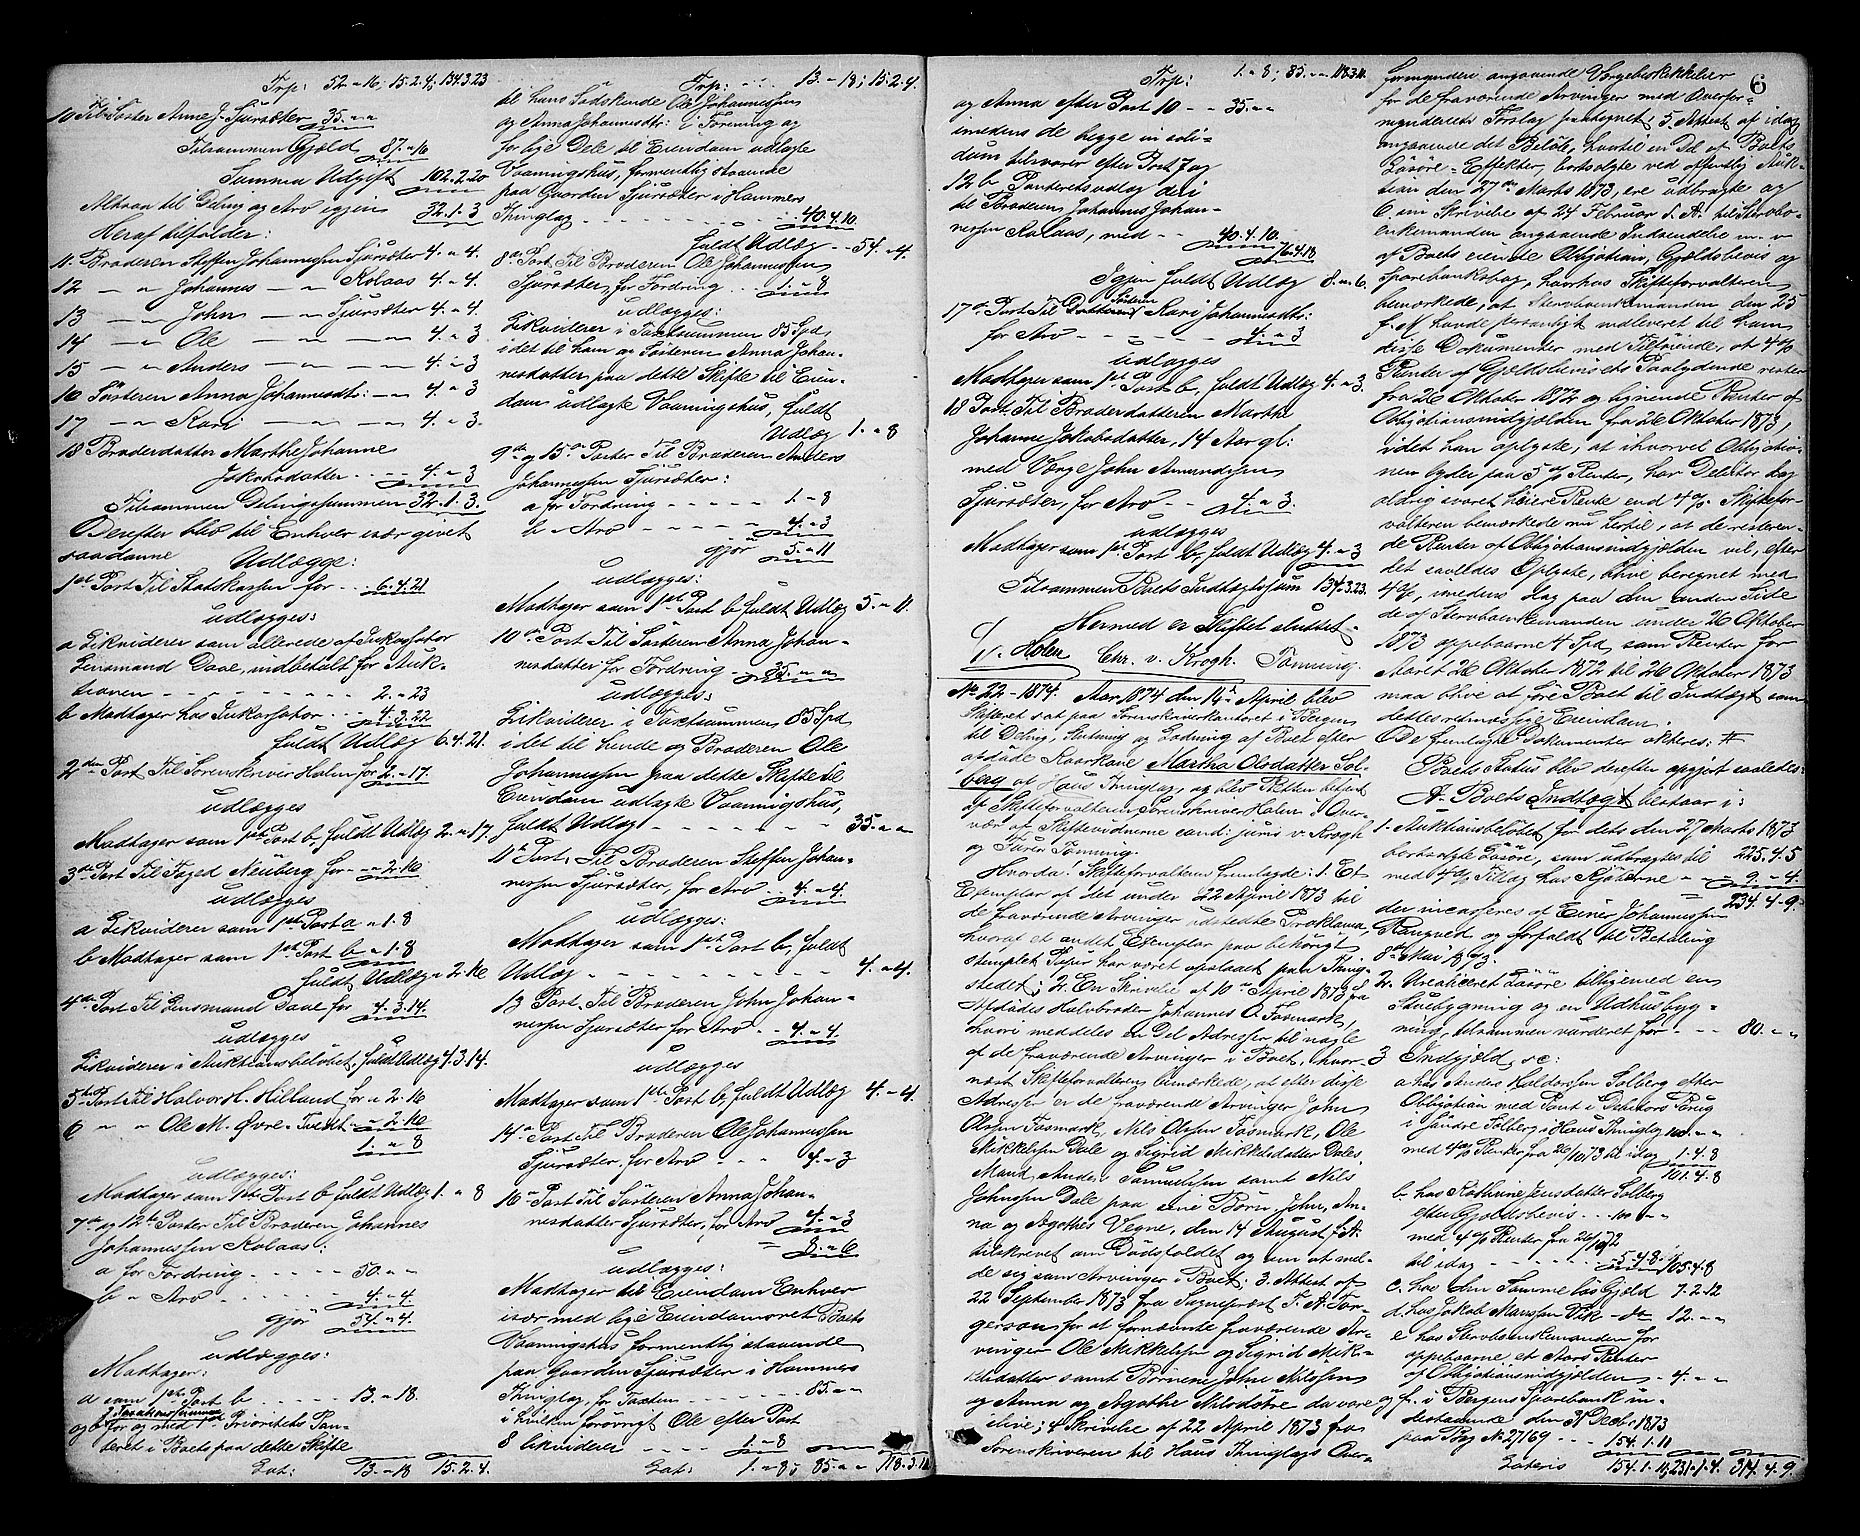 Trp: 52 " 16; 15.2.4; 134.3.23
10 Til Søster Anne J. Sjursæter 35. " "
Tilsammen Gjæld 87. " 16
Summa Udgift 102.2.20
Altsaa til Deling og Arv igjen 32.1.3
Heraf tilfalder:
11. Broderen Steffen Johannessen Sjursæter 4. " 4.
12 — " Johannes — " Kolaas 4. " 4.
13 — " John — " Sjursæter 4. " 4
14 — " Ole — " — " 4. " 3
15 — " Anders — " — " 4. " 3
16 Søsteren Anna Johannesdtr: — " 4. " 3
17 — " Kari — " — " 4. " 3.
18 Broderdatter Marthe Johanne
Jakobsdatter 4. " 3
Tilsammen Delingssummen 32.1.3.
Derefter blev til Enhver især givet
saadanne Udlægge:
1st Post Til Statskassen for 6.4.21
udlægges:
a Likviderer som allerede af Inkassator
Lensmand Daae, indbetalt for Auk-
tionen 2. " 23
b Modtager hos Inkassator 4.3.22
fuldt Udlæg 6.4.21.
2den Post Til Sorenskriver Holm for 2. " 17.
udlægges
Modtager som 1st Post b, fuldt Udlæg 2. " 17.
3die Post Til Foged Neuberg for " 2.16
udlægges
a Likviderer som 1st Post a " 1.8
b Modtager som 1st Post b " 1.8
fuldt Udlæg " 2.16
4de Post Til Lensmand Daae for 4.3.14.
udlægges
Likviderer i Auktionsbeløbet, fuldt Udlæg 4.3.14.
5te Post Til Halvor H. Hilland for " 2.16
6 " " Ole M. Øvre-Tvedt " 2.16
1. " 8
udlægges:
Modtager som 1ste Post b fuldt Udlæg 1. " 8
7a og 12te Poster Til Broderen Johannes
Johannessen Kolaas:
a for Fordring 50. " "
b " Arv 4. " 4
gjør 54. " 4.
udlægges:
Modtager:
a som 1st Post b 13. " 18.
og b for og med 1st Prioritets Pan-
teret i Boets paa dette Skifte
Lat: 13. " 18 15.2.4.
Trp: 13. " 18; 15.2.4.
til hans Sødskende Ole Johannessen
og Anna Johannesdtr: i Forening og
for lige Dele til Eiendom udlagte
Vaaningshus, formentlig staaende
paa Gaarden Sjursæter i Hammers
Thinglag 40.4.10
fuldt Udlæg 54. " 4.
8a Post Til Broderen Ole Johannessen
Sjursæter, for Fordring 1. " 8
udlægges:
Likviderer i Taxtsummen 85 Spd,
i det til ham og Søsteren Anna Johan-
nesdatter paa dette Skifte til Eien-
dom udlagte Vaaningshus, fuldt
Udlæg 1. " 8
9de og 15a Poster Til Broderen Anders
Johannessen Sjursæter:
a for Fordring 1. " 8
b " Arv 4. " 3
gjør 5. " 11
udlægges:
Modtager som 1st Post b fuldt Udlæg 5. " 11.
10a Post Til Søsteren Anna Johan-
nesdatter for Fordring 35. " "
udlægges:
Likviderer i Taxtsummen 85 Spd
i det til hende og Broderen Ole
Johannessen paa dette Skifte til
Eiendom udlagte Vaaningshus,
fuldt Udlæg 35. " "
11te Post: Til Broderen Steffen Johan-
nessen Sjursæter, for Arv 4. " 4.
udlægges:
Modtager som 1st Post b, fuldt
Udlæg 4. " 4.
13 Post: Til Broderen John Johan-
nessen Sjursæter for Arv 4. " 4.
udlægges
Modtager som 1ste Post b fuldt Udlæg 4. " 4
14a Post Til Broderen Ole Johannessen
Sjursæter, for Arv 4. " 3
16a Post Til Søsteren Anna Johan-
nesdatter Sjursæter, for Arv 4. " 3
8. " 6
udlægges:
Modtager til Eiendom Enhver
især med lige Eiendomsret Boets
Vaaningshus formentlig staaende
paa Gaarden Sjursæter i Hammers
Thinglag, for Taxten 85. " "
i hvilken forøvrigt Ole efter Post
8 likviderer 1. " 8
Lat: 1. " 8; 85. " " 118.3.11
6
Trp: 1. " 8; 85. " " 118.3.11
og Anna efter Post 10 — " 35 " "
imedens de begge in soli-
dum tilsvarer efter Post 7 og
12 b, Panteretsudlæg deri
til Broderen Johannes Johan-
nessen Kolaas, med " 40.4.10.
76.4.18
Igjen fuldt Udlæg 8. " 6.
17a Post Til Søsteren Kari Johannesdtr:
for Arv 4. " 3
udlægges
Modtager som 1st Post b, fuldt Udlæg 4. " 3.
18 Post. Til Broderdatteren Marthe
Johanne Jakobsdatter, 14 Aar gl:
med Værge John Amundsen
Sjursæter, for Arv 4. " 3.
udlægges
Modtager som 1st Post b, fuldt Udlæg 4. " 3
Tilsammen Boets Indtægtssum 134.3.23.
Hermed er Skiftet sluttet.
Holm Chr. v. Krogh. Tønning.
No 22 - 1874. Aar 1874 den 14de April blev
Skifteret sat paa Sorenskriverkontoret i Bergen
til Deling, Slutning og Lodning af Boet efter
afdøde Kaarkone Martha Olsdatter Sol-
berg af Haus Thinglag, og blev Retten betjent
af Skifteforvalteren Sorenskriver Holm i Over-
vær af Skiftevidnerne cand: juris v. Krogh
og Fuxer Tønning.
Hvorda: Skifteforvalteren fremlagde: 1. Et
Exemplar af det under 22 April 1873 til
de fraværende Arvinger udstedte Proklama,
hvoraf et andet Exemplar paa behørigt
stemplet Papir har været opslaaet paa Thing-
stedet; 2. En Skrivelse af 10de April 1873 fra
Afdødes Halvbroder Johannes O. Fosmark,
hvori meddeles en Del Adresser til nogle
af de fraværende Arvinger i Boet, hvor-
næst Skifteforvalteren bemærkede, at efter disse
Adresser er de fraværende Arvinger John
Olsen Fosmark, Nils Olsen Fosmark, Ole
Mikkelsen Dale og Sigrid Mikkelsdatter Dales
Mand, Anders Samuelsen samt Nils
Johnsen Dale paa sine Børn John, An-
na og Agathes Vegne, den 14 August f. A.
tilskrevet om Dødsfaldet og om at mel-
de sig som Arvinger i Boet. 3. Attest af
22 September 1873 fra Sognepræst T. A. Tor-
gersen for at fornævnte fraværende Ar-
vinger Ole Mikkelsen og Sigrid Mik-
kelsdatter samt Børnene John Nilssen
og Anna og Agathe Nilsdøtre da vare
ilive; 4 Skrivelse af 22 April 1873 fra
Sorenskriveren til Haus Thinglags Over-
formynderi angaaende Værgebeskikkelser
for de fraværende Arvinger med Overfor-
mynderiets Forslag paategnet; 5. Attest af idag
angaaende det Beløb, hvortil en Del af Boets
Løsøre-Effekter, bortsolgte ved offentlig Auk-
tion den 27de Marts 1873, ere udbragte og
6. im Skrivelse af 24 Februar d. A. til Stervbo-
enkemanden angaaende Indsendelse m. v
af Boets eiende Obligation, Gjældsbevis og
Sparebankbog, hvorhos Skifteforvalteren
bemærkede, at Stervboenkemanden den 25
f. M havde personligt indleveret til ham
disse Dokumenter med Tilføiende, at 4 %
Renter af Gjældsbevisets Paalydende rester
fra 26 Oktober 1872 og lignende Renter af
Obligationsindgjælden fra 26 Oktober 1873,
idet han oplyste, at ihvorvel Obligatio-
nen lyder paa 5 % Renter, har Debitor dog
aldrig svaret høiere Rente end 4 %. Skiftefor-
valteren bemærkede nu hertil, at de resteren-
de Renter af Obligationsindgjælden vil, efter
det saaledes Oplyste, blive beregnet med
4 %, imedens dog paa den anden Side
de af Stervboenkemanden under 26 Oktober
1873 oppebaarne 4 Spd, som Renter for
Aaret 26 Oktober 1872 til 26 Oktober 1873
maa blive at føre Boet til Indtægt som
dettes retmæssige Eiendom.
De fremlagte Dokumenter akteres:
Boets Status blev derefter opgjort saaledes:
A. Boets Indtægt bestaar i:
1. Auktionsbeløbet for dets den 27 Marts 1873
bortsolgte Løsøre, som udbragtes til 225.4.5
med 4 % Tillæg hos Kjøberne " 9. " 4
234.4.9.
der incasseres af Einer Johannessen
Rangved og forfaldt til Betaling
8de Mai 1873.
2. Urealiseret Løsøre tilligemed en
Stuebygning og en Udhusbyg-
ning, tilsammen vurderet for 80. " "
3 Indgjæld, sc:
a hos Anders Haldorssen Solberg efter
Obligation med Pant i Debitors Brug
i Søndre Solberg i Haus Thinglag 100. " "
med 4 % Renter fra 26/10 73 til idag 1.4.8
101.4.8
b. hos Kathrine Jensdatter Solberg
efter Gjældsbevis 100 " "
med 4 % Renter fra 26/10 72
til idag 5.4.8 105.4.8
c. hos den Samme løs Gjæld 7.2.12
d. hos Jakob Monssen Vik — do 12. " "
e hos Stervboenkemanden for
oppebaarne et Aars Renter
af Obligationsindgjælden 4. " "
og f. i Bergens Sparebank in-
destaaende den 31 Decbr 1873
paa Bog No 27169 154.1.11
Lateris 154.1.11; 231.1.4. 314.4.9.